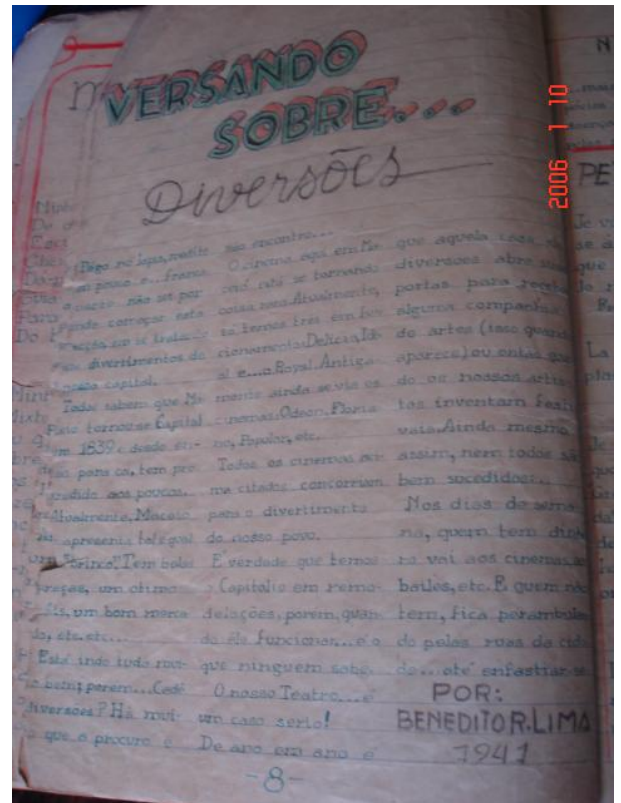 VERSANDO
SOBRE...
Diversões
Pego no lapis, medito
um pouco e... franca
mente não sei por
onde começar esta
secção sio se tratando
dos divertimentos da
nossa capital.
Todos sabem que Ma
ceio tornou-se Capital
em 1839 e desde en-
tão para cá, tem pro
gredido aos poucos.
Atualmente, Maceio
se apresenta tal e qual
um "brinco". Tem belas
praças, um otimo
um bom merca
do, etc. etc...
Está indo tudo mui-
to bem; porem... Cadê
diversões? Há mui-
que o procuro e
não encontro...
O cinema aqui em Ma
ceió está se tornando
coisa rara. Atualmente,
só temos tres em fun
cionamento: Delicia, Ide
al e... o Royal. Antiga-
mente ainda se via os
cinemas: Odeon, Floria
no, Popular, etc.
Todos os cinemas aci-
ma citados concorriam
para o divertimento
do nosso povo.
É verdade que temos
o Capitolio em remo-
delações, porem, quan
do êle funcionar... é o
que ninguem sabe.
O nosso Teatro... é
um caso serio!
De ano em ano é
que aquela casa de
diversões abre suas
portas para receber
alguma companhia
de artes (isso quando
aparece) ou então quan
do os nossos artis
tas inventam festi
vais. Ainda mesmo
assim, nem todos são
bem sucedidos...
Nos dias de sema
na, quem tem dinhei
ro vai aos cinemas, aos
bailes, etc. E quem não
tem, fica perambulan
do pelas ruas da cida
de... até enfastiar-se
POR:
BENEDITO R. LIMA
1941
-8-
2006 1 10
N
PE